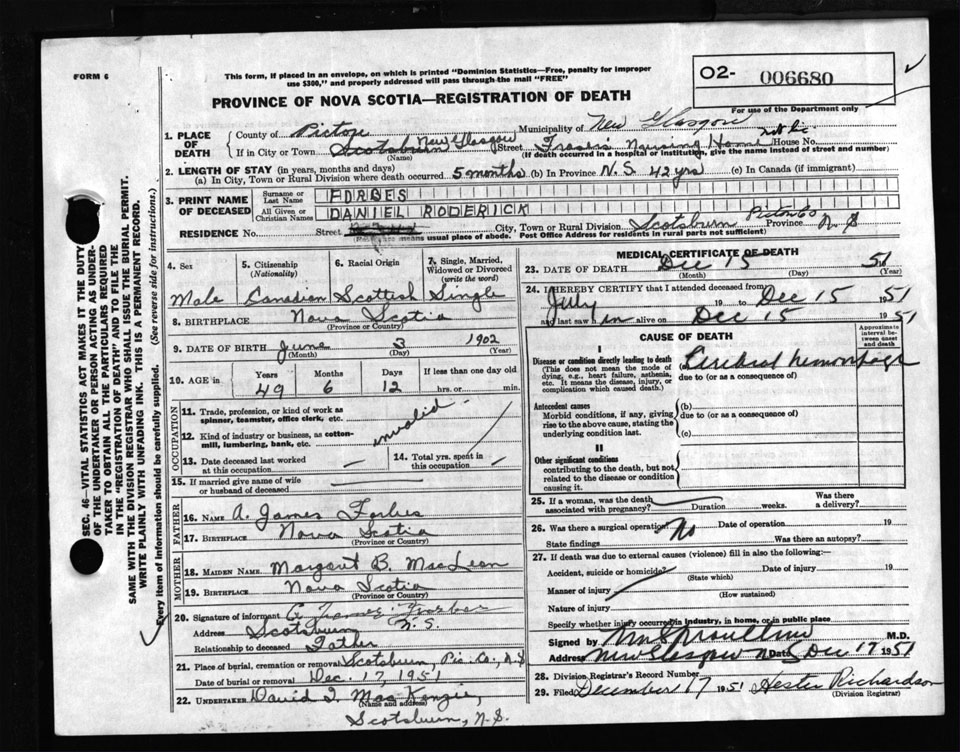 FORM 6
This form, if placed in an envelope, on which is printed "Dominion Statistics—Free, penalty for improper
use $300," and properly addressed will pass through the mail "FREE"
O2- 006680
For use of the Department only
PROVINCE OF NOVA SCOTIA—REGISTRATION OF DEATH
1. PLACE OF DEATH
County of Pictou Municipality of New Glasgow
If in City or Town Scotsburn New Glasgow Street Nursing Home House No.
(Name) (If death occurred in a hospital or institution, give the name instead of street and number)
2. LENGTH OF STAY (in years, months and days)
(a) In City, Town or Rural Division where death occurred 5 months (b) In Province N.S. 42 yrs (c) In Canada (if immigrant)
3. PRINT NAME OF DECEASED
Surname or Last Name FORBES
All Given or Christian Names DANIEL RODERICK
RESIDENCE No. Street City, Town or Rural Division Scotsburn Pictou Co Province N.S
(Residence means usual place of abode. Post Office Address for residents in rural parts not sufficient)
4. Sex
Male
5. Citizenship
(Nationality)
Canadian
6. Racial Origin
Scottish
7. Single, Married, Widowed or Divorced
(write the word)
Single
8. BIRTHPLACE Nova Scotia
(Province or Country)
9. DATE OF BIRTH June 3 1902
(Month) (Day) (Year)
10. AGE in Years Months Days If less than one day old
49 6 12 hrs. or min.
OCCUPATION
11. Trade, profession, or kind of work as
spinner, teamster, office clerk, etc. invalid
12. Kind of industry or business, as cotton-
mill, lumbering, bank, etc.
13. Date deceased last worked
at this occupation —
14. Total yrs. spent in
this occupation —
15. If married give name of wife
or husband of deceased —
FATHER
16. NAME A. James Forbes
17. BIRTHPLACE Nova Scotia
(Province or Country)
MOTHER
18. MAIDEN NAME Margaret B. MacLean
19. BIRTHPLACE Nova Scotia
(Province or Country)
20. Signature of informant A James Forbes
Address Scotsburn N.S.
Relationship to deceased Father
21. Place of burial, cremation or removal Scotsburn, Pic. Co., N.S
Date of burial or removal Dec. 17, 1951
22. UNDERTAKER David I. MacKenzie,
(Name and address)
Scotsburn, N.S.
MEDICAL CERTIFICATE OF DEATH
23. DATE OF DEATH Dec 15 51
(Month) (Day) (Year)
24. I HEREBY CERTIFY that I attended deceased from
July 19 to Dec 15 1951
and last saw him alive on Dec 15 1951
CAUSE OF DEATH
Approximate interval between onset and death
I
Disease or condition directly leading to death
(This does not mean the mode of
dying, e.g., heart failure, asthenia,
etc. It means the disease, injury, or
complication which caused death.)
Cerebral hemorrhage
due to (or as a consequence of)
Antecedent causes
Morbid conditions, if any, giving
rise to the above cause, stating the
underlying condition last.
(b)
due to (or as a consequence of)
(c)
II
Other significant conditions
contributing to the death, but not
related to the disease or condition
causing it.
25. If a woman, was the death
associated with pregnancy? Duration weeks. Was there a delivery?
26. Was there a surgical operation? No Date of operation 19
State findings Was there an autopsy?
27. If death was due to external causes (violence) fill in also the following:—
Accident, suicide or homicide? Date of injury 19
(State which)
Manner of injury
(How sustained)
Nature of injury
Specify whether injury occurred in industry, in home, or in public place
Signed by M.D.
Address New Glasgow N.S Dec 17 1951
28. Division Registrar's Record Number
29. Filed December 17 1951 Hester Richardson
(Division Registrar)
SEC. 46—VITAL STATISTICS ACT MAKES IT THE DUTY
OF THE UNDERTAKER OR PERSON ACTING AS UNDER-
TAKER TO OBTAIN ALL THE PARTICULARS REQUIRED
IN THE "REGISTRATION OF DEATH" AND TO FILE THE
SAME WITH THE DIVISION REGISTRAR WHO SHALL ISSUE THE BURIAL PERMIT.
WRITE PLAINLY WITH UNFADING INK. THIS IS A PERMANENT RECORD.
Every item of information should be carefully supplied. (See reverse side for instructions.)